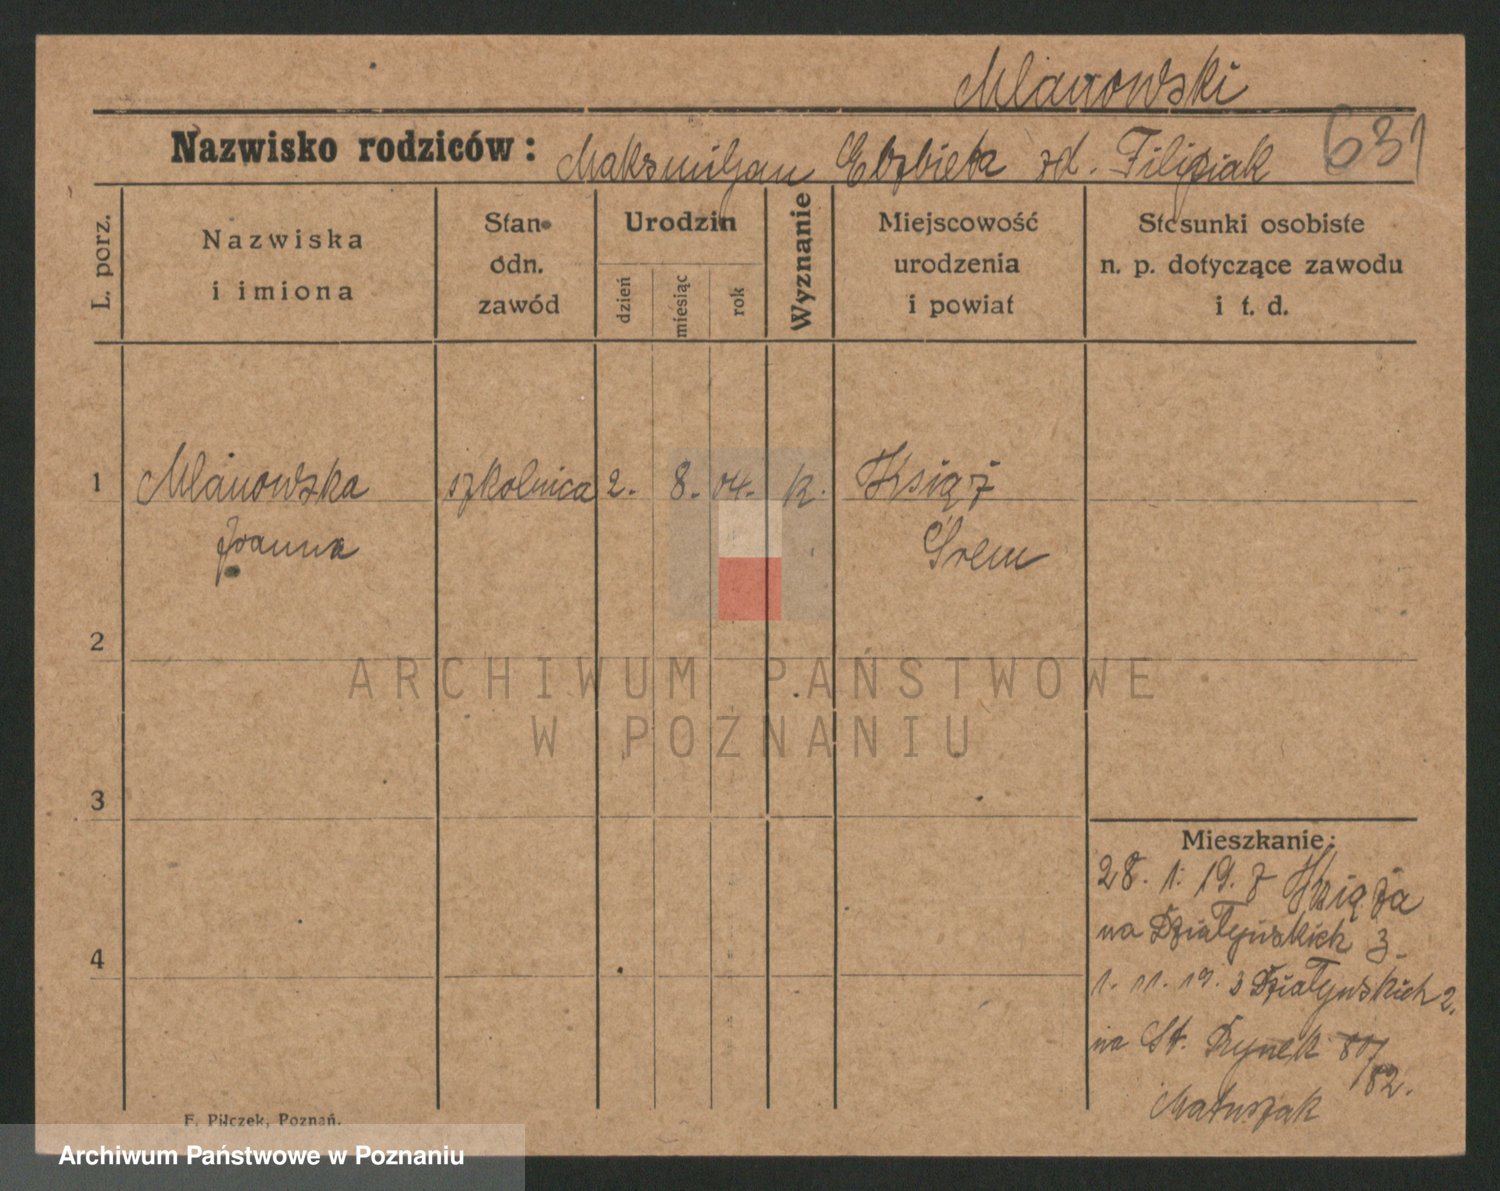 Mlanowski
Nazwisko rodziców: Maksmiljan Elzbieta zd. Filipiak 631
L. porz.
Nazwiska
i imiona
Stan
odn.
zawód
Urodzin
dzień
miesiąc
rok
Wyznanie
Miejscowość
urodzenia
i powiat
Stosunki osobiste
n. p. dotyczące zawodu
i t. d.
1 Mlanowska szkolnica 2. 8. 04. k. Książ
Joanna Śrem
2
ARCHIWUM PAŃSTWOWE
W POZNANIU
3
Mieszkanie:
28. 1. 19. z Książa
na Działyńskich 3.
4
1. 11. 19. z Działyńskich 2.
na St. Rynek 80/
82.
Matuszak
F. Pilczek, Poznań.
Archiwum Państwowe w Poznaniu